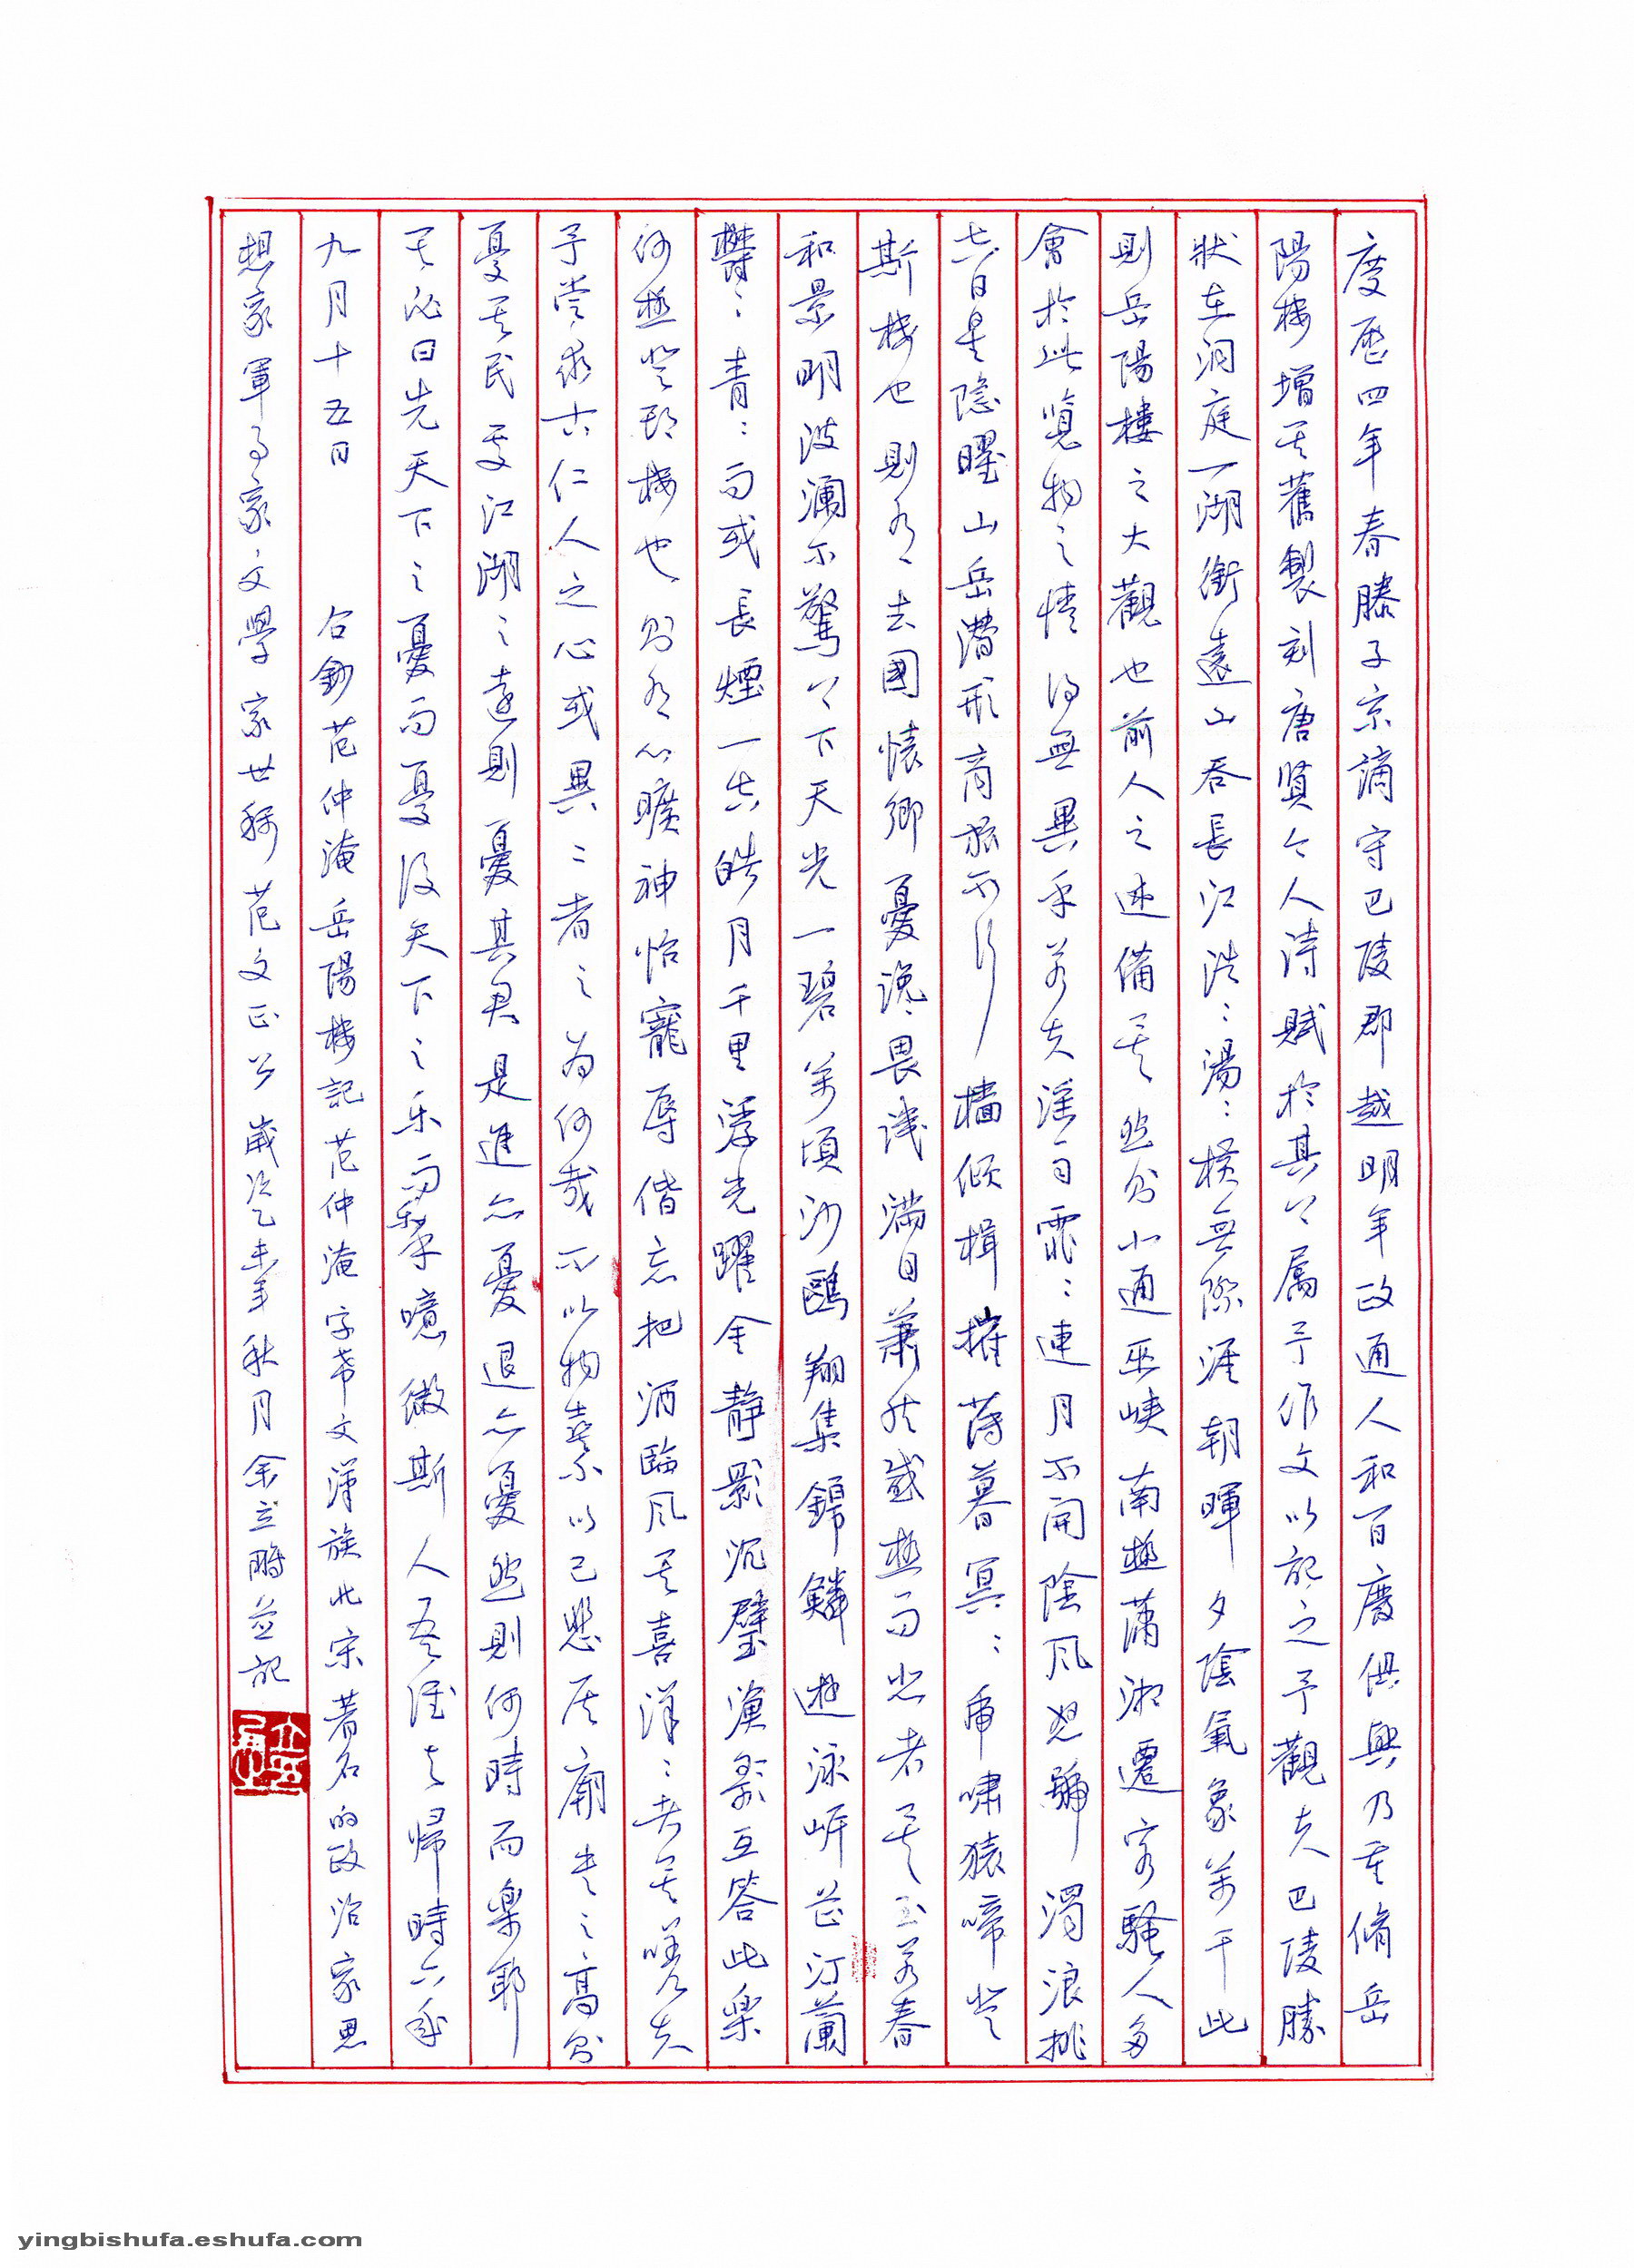 慶歷四年春滕子京謫守巴陵郡越明年政通人和百廢俱興乃重脩岳
陽樓增其舊製刻唐賢今人詩賦於其上属予作文以記之予觀夫巴陵勝
狀在洞庭一湖銜遠山吞長江浩〻湯〻橫無際涯朝暉夕陰氣象萬千此
則岳陽樓之大觀也前人之述備矣然則北通巫峽南極瀟湘遷客騷人多
會於此覽物之情得無異乎若夫淫雨霏〻連月不開陰風怒號濁浪排
空日星隱曜山岳潛形商旅不行檣傾楫摧薄暮冥〻虎嘯猿啼登
斯樓也則有去國懷鄉憂讒畏譏滿目蕭然感極而悲者矣至若春
和景明波瀾不驚上下天光一碧萬頃沙鷗翔集錦鱗遊泳岸芷汀蘭
鬱〻青〻而或長煙一空皓月千里浮光躍金靜影沉璧漁歌互答此樂
何極登斯樓也則有心曠神怡寵辱偕忘把酒臨風其喜洋〻者矣嗟夫
予嘗求古仁人之心或異二者之为何哉不以物喜不以己悲居廟堂之高則
憂其民處江湖之遠則憂其君是進亦憂退亦憂然則何時而樂耶
其必曰先天下之憂而憂後天下之乐而樂噫微斯人吾誰与歸時六年
九月十五日 右鈔范仲淹岳陽樓記 范仲淹字希文漢族北宋著名的政治家思
想家軍事家文學家世稱范文正公歲次乙未年秋月余立 並記
yingbishufa.eshufa.com